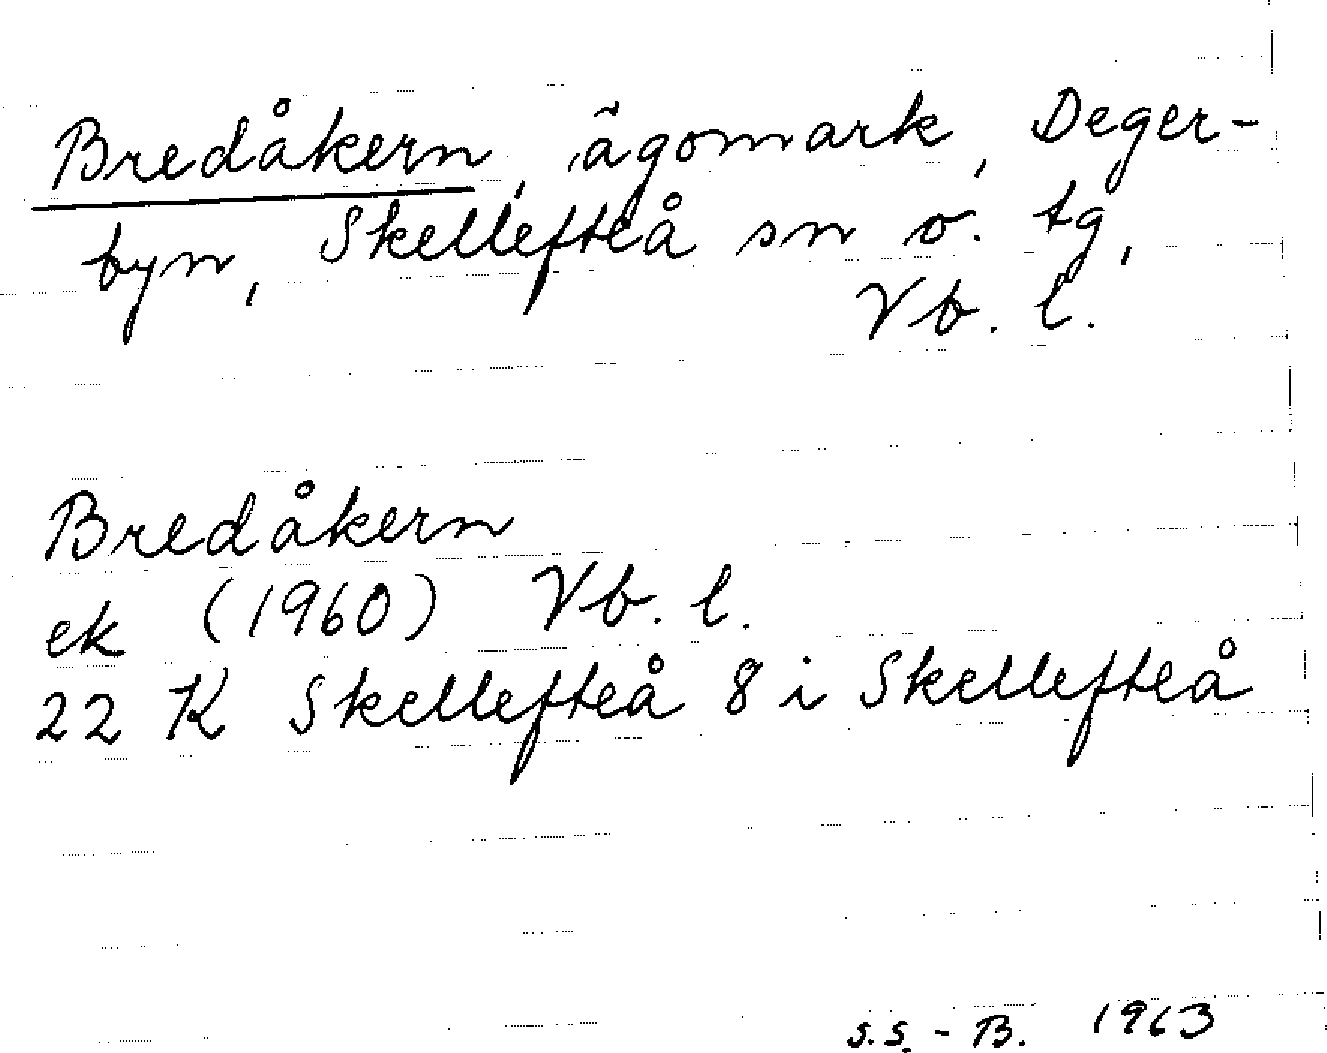 Bredåkern, ägomark, Deger-
byn, Skellefteå sn o. tg,
Vb. l.
Bredåkern
ek (1960) Vb. l.
22 K Skellefteå 8 i Skellefteå
S.S.-B. 1963